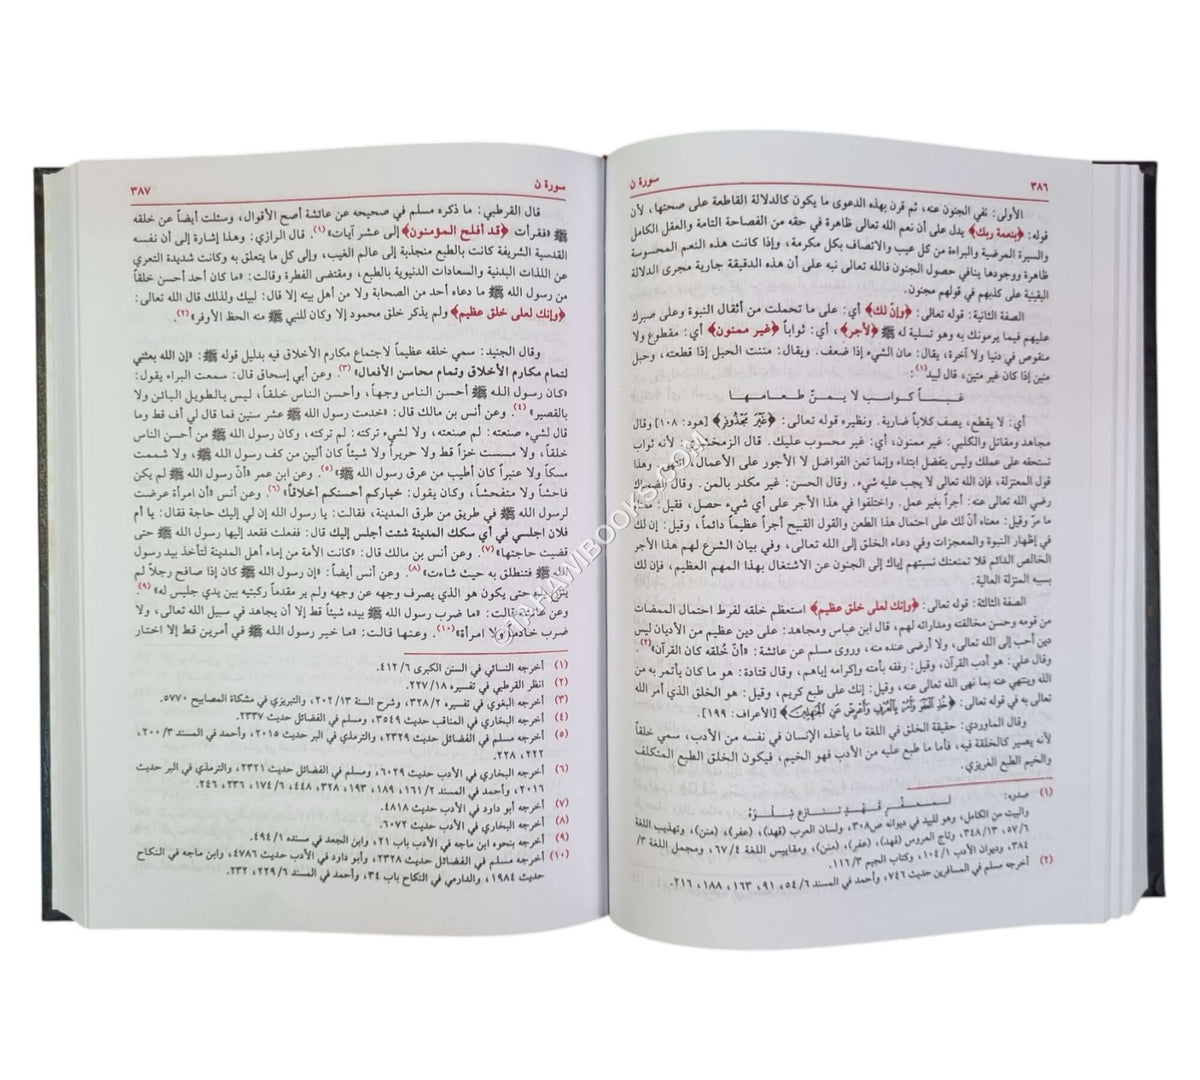 ٣٨٦
سورة ن
الأولى: نفي الجنون عنه، ثم قرن بهذه الدعوى ما يكون كالدلالة القاطعة على صحتها، لأن
قوله: ﴿بنعمة ربك﴾ يدل على أن نعم الله تعالى ظاهرة في حقه من الفصاحة التامة والعقل الكامل
والسيرة المرضية والبراءة من كل عيب والاتصاف بكل مكرمة، وإذا كانت هذه النعم المحسوسة
ظاهرة ووجودها ينافي حصول الجنون فالله تعالى نبه على أن هذه الدقيقة جارية مجرى الدلالة
اليقينية على كذبهم في قولهم مجنون.
الصفة الثانية: قوله تعالى: ﴿وإنّ لك﴾ أي: على ما تحملت من أثقال النبوة وعلى صبرك
عليهم فيما يرمونك به وهو تسلية له ﷺ ﴿لأجر﴾، أي: ثواباً ﴿غير ممنون﴾ أي: مقطوع ولا
منقوص في دنيا ولا آخرة، يقال: مان الشيء إذا ضعف. ويقال: مننت الحبل إذا قطعته، وحبل
منين إذا كان غير متين، قال لبيد(١):
غبساً كواسب لا يمنّ طعامها
أي: لا يقطع، يصف كلاباً ضارية. ونظيره قوله تعالى: ﴿غَيْرَ مَجْذُوذٍ﴾ [هود: ١٠٨] وقال
مجاهد ومقاتل والكلبي: غير ممنون، أي: غير محسوب عليك. قال الزمخشري: لأنه ثواب
تستحقه على عملك وليس بتفضل ابتداء وإنما تمن الفواضل لا الأجور على الأعمال، انتهى. وهذا
قول المعتزلة، فإن الله تعالى لا يجب عليه شيء. وقال الحسن: غير مكدر بالمن. وقال الضحاك
رضي الله تعالى عنه: أجراً بغير عمل. واختلفوا في هذا الأجر على أي شيء حصل، فقيل: معناه
ما مرّ وقيل: معناه أنّ لك على احتمال هذا الطعن والقول القبيح أجراً عظيماً دائماً، وقيل: إن لك
في إظهار النبوة والمعجزات وفي دعاء الخلق إلى الله تعالى، وفي بيان الشرع لهم هذا الأجر
الخالص الدائم فلا تمنعنك نسبتهم إياك إلى الجنون عن الاشتغال بهذا المهم العظيم، فإن لك
بسببه المنزلة العالية.
الصفة الثالثة: قوله تعالى: ﴿وإنك لعلى خلق عظيم﴾ استعظم خلقه لفرط احتمال الممضات
من قومه وحسن مخالقته ومداراته لهم، قال ابن عباس ومجاهد: على دين عظيم من الأديان ليس
دين أحب إلى الله تعالى، ولا أرضى عنده منه، وروى مسلم عن عائشة: «أنّ خُلقه كان القرآن»(٢).
وقال علي: هو أدب القرآن، وقيل: رفقه بأمته وإكرامه إياهم، وقال قتادة: هو ما كان يأتمر به من
الله وينتهي عنه بما نهى الله تعالى عنه، وقيل: إنك على طبع كريم، وقيل: هو الخلق الذي أمر الله
تعالى به في قوله تعالى: ﴿خُذِ الْعَفْوَ وَأْمُرْ بِالْعُرْفِ وَأَعْرِضْ عَنِ الْجَاهِلِينَ﴾ [الأعراف: ١٩٩].
وقال الماوردي: حقيقة الخلق في اللغة ما يأخذه الإنسان في نفسه من الأدب، سمي خلقاً
لأنه يصير كالخلقة فيه، فأما ما طبع عليه من الأدب فهو الخيم، فيكون الخلق الطبع المتكلف
والخيم الطبع الغريزي.
(١) صدره:
لمعفّر قهد تنازع شلوه
والبيت من الكامل، وهو للبيد في ديوانه ص٣٠٨، ولسان العرب (قهد)، (عفر)، (منن)، وتهذيب اللغة
٥٧/٦، ٣٤٨/١٣، وتاج العروس (قهد)، (عفر)، (منن)، ومقاييس اللغة ٦٧/٤، ومجمل اللغة ٣/
٣٨٤، وديوان الأدب ١٠٤/١، وكتاب الجيم ١١٦/٣.
(٢) أخرجه مسلم في المسافرين حديث ٧٤٦، وأحمد في المسند ٥٤/٦، ٩١، ١٦٣، ١٨٨، ٢١٦.
سورة ن
٣٨٧
قال القرطبي: ما ذكره مسلم في صحيحه عن عائشة أصح الأقوال، وسئلت أيضاً عن خلقه
ﷺ «فقرأت ﴿قد أفلح المؤمنون﴾ إلى عشر آيات»(١). قال الرازي: وهذا إشارة إلى أن نفسه
القدسية الشريفة كانت بالطبع منجذبة إلى عالم الغيب، وإلى كل ما يتعلق به وكانت شديدة التعري
عن اللذات البدنية والسعادات الدنيوية بالطبع، ومقتضى الفطرة وقالت: «ما كان أحد أحسن خلقاً
من رسول الله ﷺ ما دعاه أحد من الصحابة ولا من أهل بيته إلا قال: لبيك ولذلك قال الله تعالى:
﴿وإنك لعلى خلق عظيم﴾ ولم يذكر خلق محمود إلا وكان للنبي ﷺ منه الحظ الأوفر»(٢).
وقال الجنيد: سمي خلقه عظيماً لاجتماع مكارم الأخلاق فيه بدليل قوله ﷺ: «إن الله بعثني
لتمام مكارم الأخلاق وتمام محاسن الأفعال»(٣). وعن أبي إسحاق قال: سمعت البراء يقول:
«كان رسول الله ﷺ أحسن الناس وجهاً، وأحسن الناس خلقاً، ليس بالطويل البائن ولا
بالقصير»(٤). وعن أنس بن مالك قال: «خدمت رسول الله ﷺ عشر سنين فما قال لي أف قط وما
قال لشيء صنعته: لم صنعته، ولا لشيء تركته: لم تركته، وكان رسول الله ﷺ من أحسن الناس
خلقاً، ولا مسست خزاً قط ولا حريراً ولا شيئاً كان ألين من كف رسول الله ﷺ، ولا شممت
مسكاً ولا عنبراً كان أطيب من عرق رسول الله ﷺ»(٥). وعن ابن عمر «أنّ رسول الله ﷺ لم يكن
فاحشاً ولا متفحشاً، وكان يقول: خياركم أحسنكم أخلاقاً»(٦). وعن أنس «أن امرأة عرضت
لرسول الله ﷺ في طريق من طرق المدينة، فقالت: يا رسول الله إن لي إليك حاجة فقال: يا أم
فلان اجلسي في أي سكك المدينة شئت أجلس إليك قال: ففعلت فقعد إليها رسول الله ﷺ حتى
قضيت حاجتها»(٧). وعن أنس بن مالك قال: «كانت الأمة من إماء أهل المدينة لتأخذ بيد رسول
الله ﷺ فتنطلق به حيث شاءت»(٨). وعن أنس أيضاً: «إن رسول الله ﷺ كان إذا صافح رجلاً لم
ينزع يده حتى يكون هو الذي يصرف وجهه عن وجهه ولم ير مقدماً ركبتيه بين يدي جليس له»(٩).
وعن عائشة قالت: «ما ضرب رسول الله ﷺ بيده شيئاً قط إلا أن يجاهد في سبيل الله تعالى، ولا
ضرب خادماً ولا امرأة»(١٠). وعنها قالت: «ما خير رسول الله ﷺ في أمرين قط إلا اختار
(١) أخرجه النسائي في السنن الكبرى ٤١٢/٦.
(٢) انظر القرطبي في تفسيره ٢٢٧/١٨.
(٣) أخرجه البغوي في تفسيره ٣٢٨/٢، وشرح السنة ٢٠٢/١٣، والتبريزي في مشكاة المصابيح ٥٧٧٠.
(٤) أخرجه البخاري في المناقب حديث ٣٥٤٩، ومسلم في الفضائل حديث ٢٣٣٧.
(٥) أخرجه مسلم في الفضائل حديث ٢٣٢٩، والترمذي في البر حديث ٢٠١٥، وأحمد في المسند ٢٠٠/٣،
٢٢٢، ٢٢٨.
(٦) أخرجه البخاري في الأدب حديث ٦٠٢٩، ومسلم في الفضائل حديث ٢٣٢١، والترمذي في البر حديث
٢٠١٦، وأحمد في المسند ١٦١/٢، ١٨٩، ١٩٣، ٣٢٨، ٤٤٨، ١٧٤/٦، ٢٣٦، ٢٤٦.
(٧) أخرجه أبو داود في الأدب حديث ٤٨١٨.
(٨) أخرجه البخاري في الأدب حديث ٦٠٧٢.
(٩) أخرجه بنحوه ابن ماجه في الأدب باب ٢١، وابن الجعد في مسنده ٤٩٤/١.
(١٠) أخرجه مسلم في الفضائل حديث ٢٣٢٨، وأبو داود في الأدب حديث ٤٧٨٦، وابن ماجه في النكاح
حديث ١٩٨٤، والدارمي في النكاح باب ٣٤، وأحمد في المسند ٢٢٩/٦، ٢٣٢.